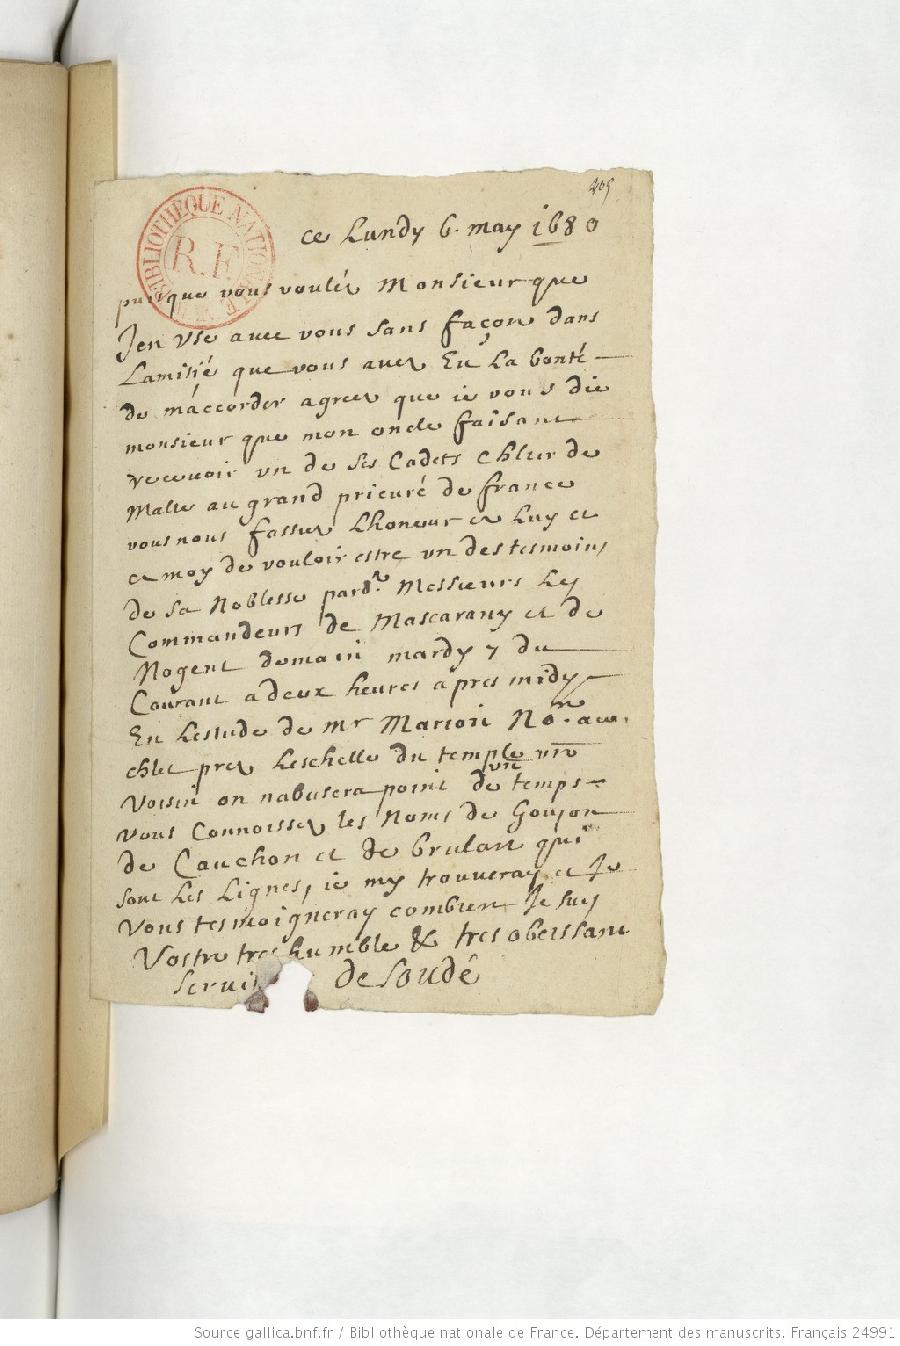 405
BIBLIOTHEQUE NATIONALE
R.F.
ce Lundy 6. may 1680
puisque vous voulés Monsieur que
Jen Vse auec vous sans façon dans
Lamitié que vous auez Eu La bonté
de m'accorder agreez que ie vous die
monsieur que mon oncle faisant
receuoir vn de ses Cadets chlier de
Malte au grand prieuré de france
vous nous fassiez Lhoneur et Luy et
a moy de vouloir estre vn des tesmoins
de sa Noblesse pardt Messieurs Les
Commandeurs de Mascarany et de
Nogent demain mardy 7 du
Courant a deux heures apres midy
En Lestude de mr Marion Nore au
chlet prez Leschelle du temple vre
Voisin on nabusera point de vre temps
vous Connoissez les Noms de Goujon
de Cauchon et de brulart qui
sont Les Lignes, ie my trouueray et Je
Vous tesmoigneray combien Je suis
Vostre tres humble & tres obeissant
seruit
de Soudé
Source gallica.bnf.fr / Bibliothèque nationale de France. Département des manuscrits. Français 24991